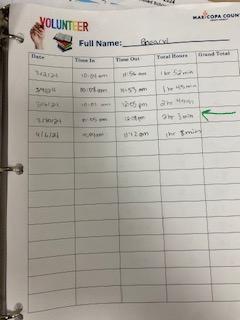 VOLUNTEER
MARICOPA COUN
Full Name:
Date Time In Time Out Total Hours Grand Total
3/2/24 10:04 am 11:56 am 1 hr 52 min
10:08 am 11:53 am 1 hr 45 min
12:05 pm 2 hr
3/30/24 10:05 am 12:08 pm 2 hr 3 min
4/6/24 11:12 am 1 hr 8 min